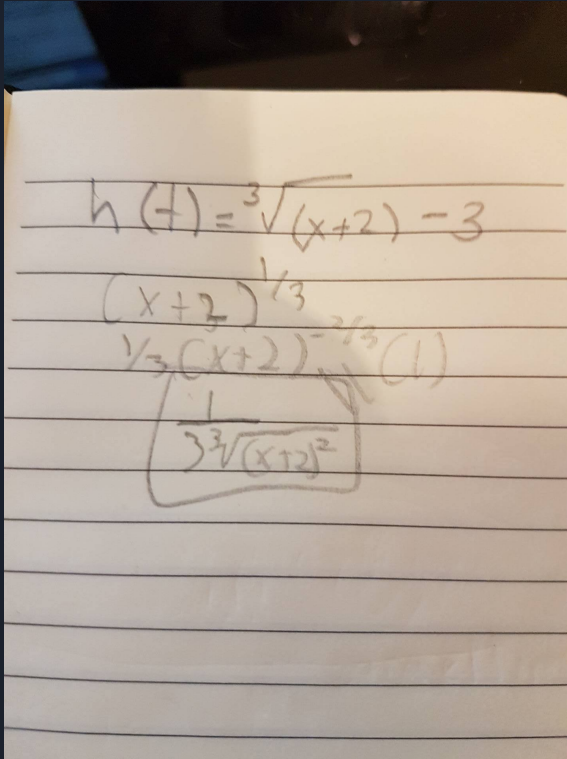 h(t) = ³√(x+2) - 3
(x+2)^1/3
1/3(x+2)^-2/3 (1)
1/(3 ³√(x+2)²)